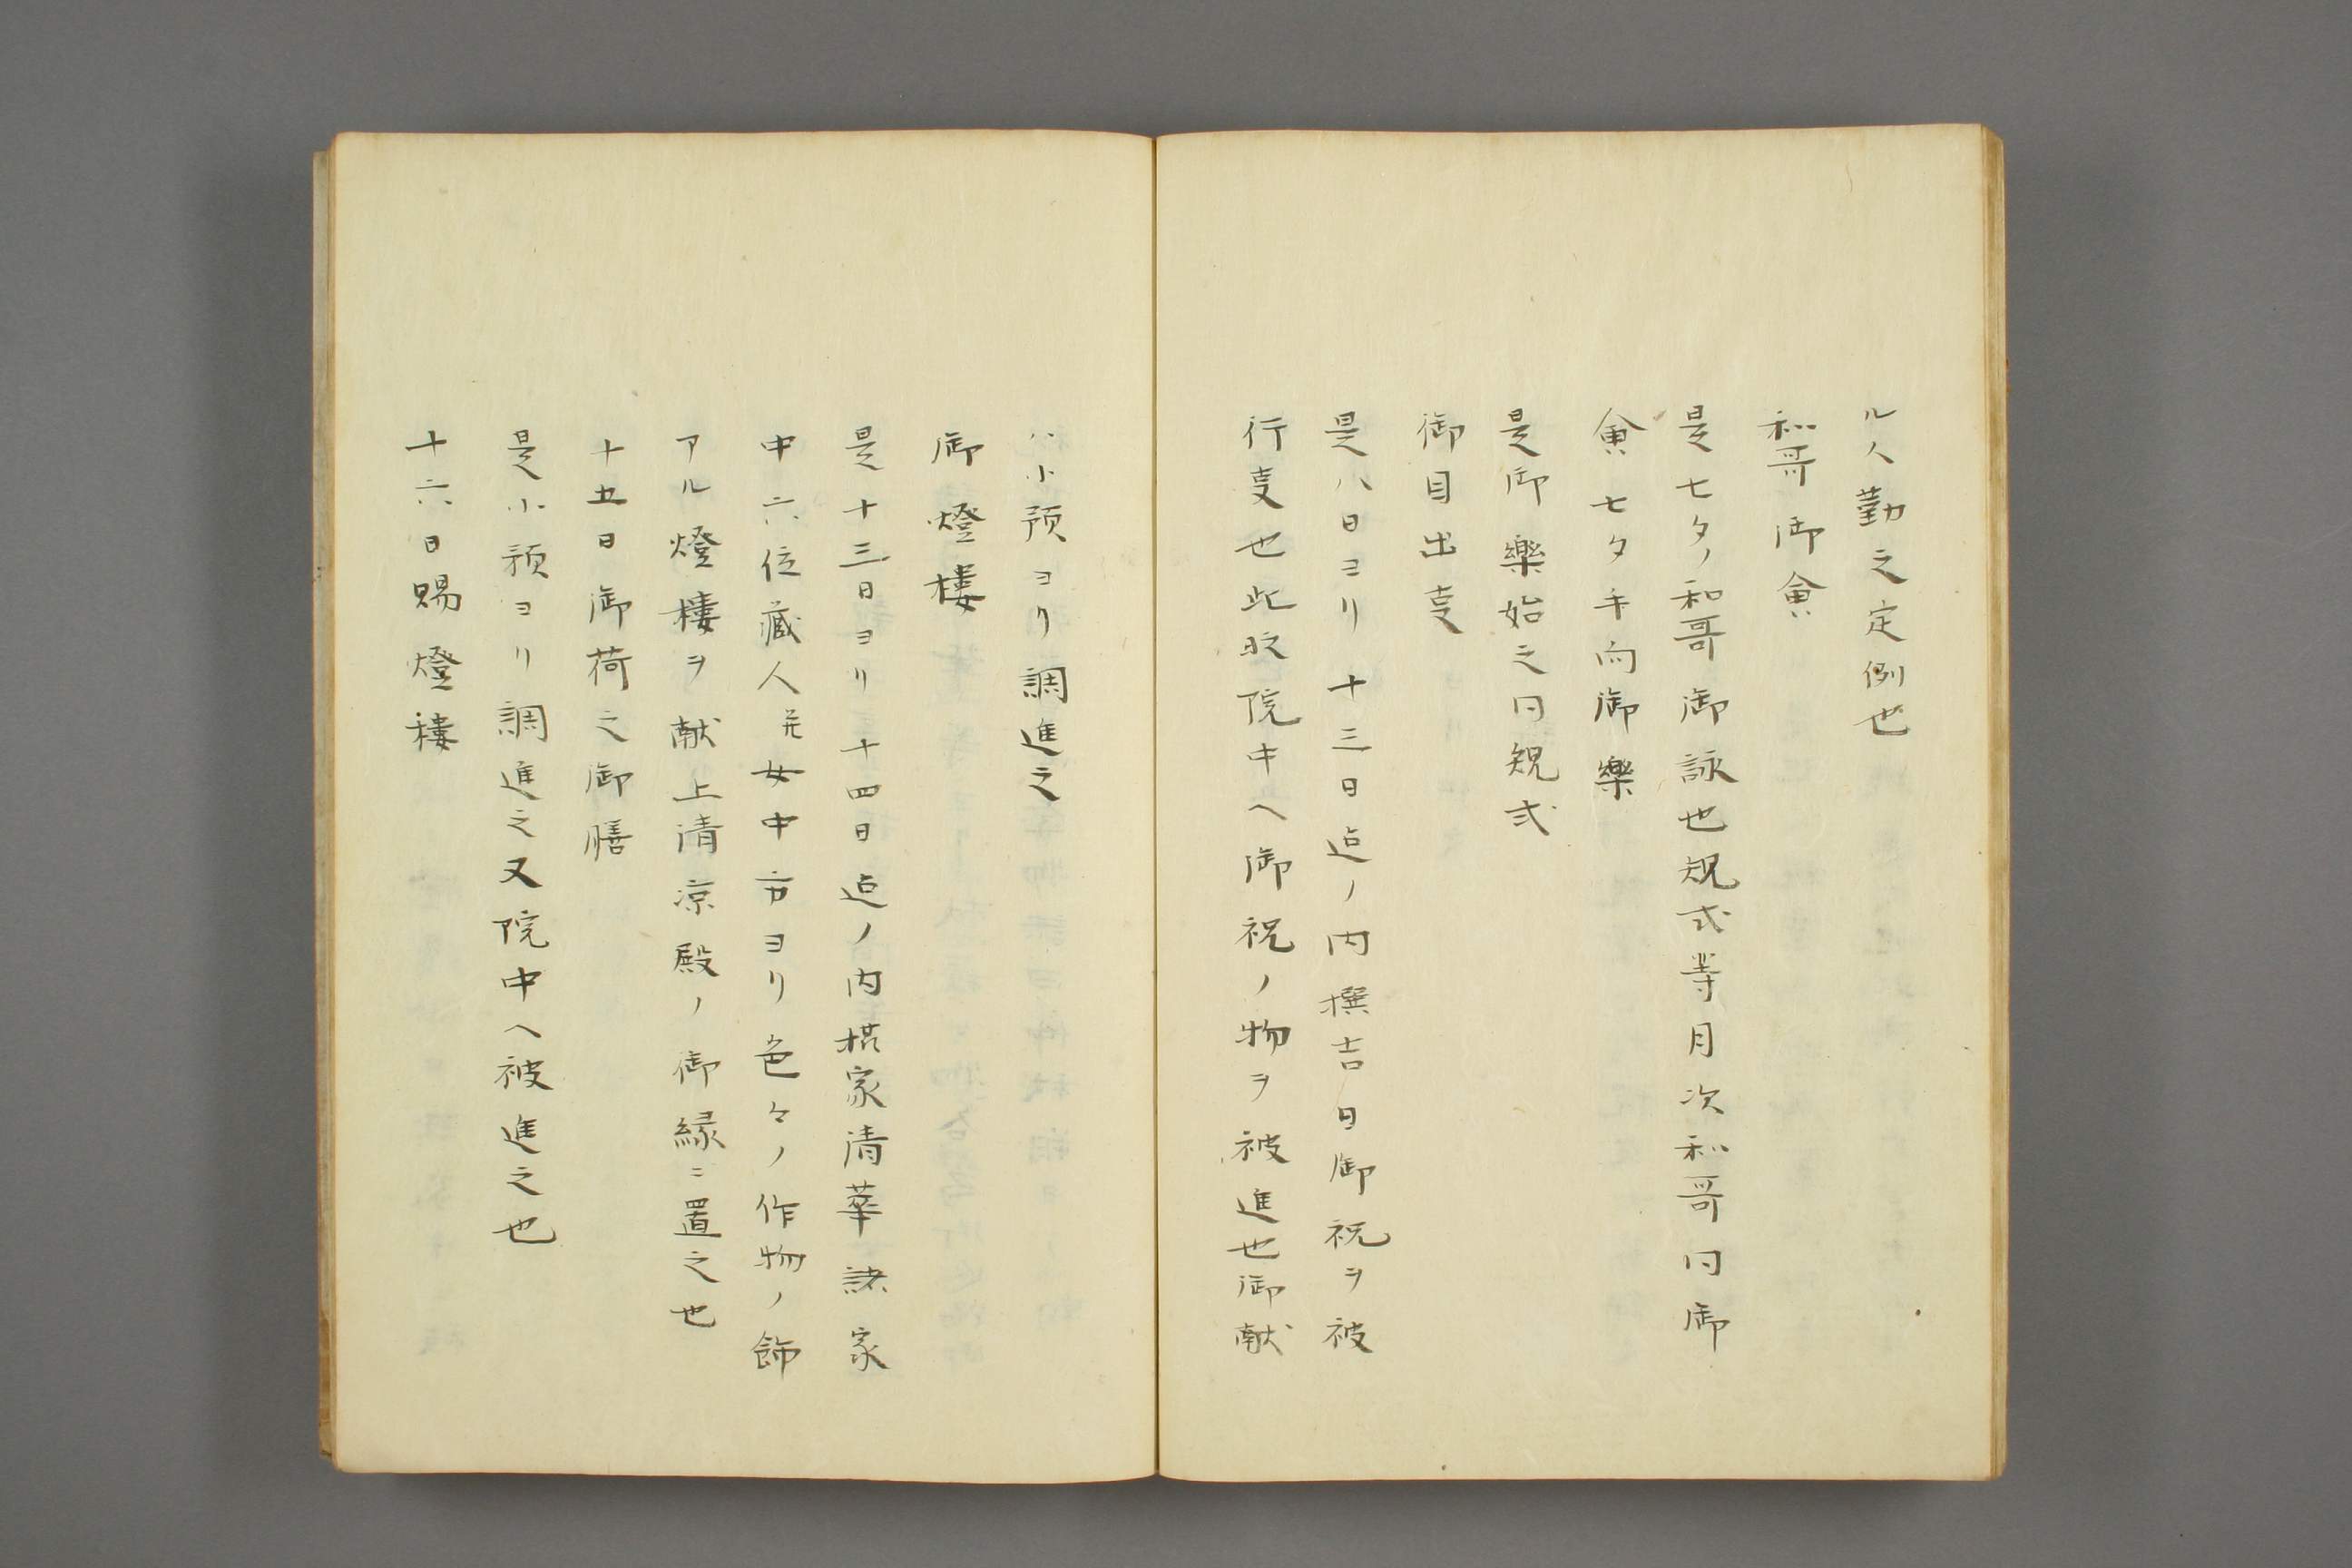 ル人勤之定例也
和哥御會
是七夕ノ和哥御詠也規式等月次和哥同御
會七夕手向御樂
是御樂始之同規式
御目出叓
是八日ヨリ十三日迠ノ内撰吉日御祝ヲ被
行叓也此段院中ヘ御祝ノ物ヲ被進也御献
ハ小預ヨリ調進之
御燈樓
是十三日ヨリ十四日迠ノ内攝家清華諸家
中六位藏人并女中方ヨリ色々ノ作物ノ飾
アル燈樓ヲ献上清凉殿ノ御縁ニ置之也
十五日御荷之御膳
是小預ヨリ調進之又院中ヘ被進之也
十六日賜燈樓